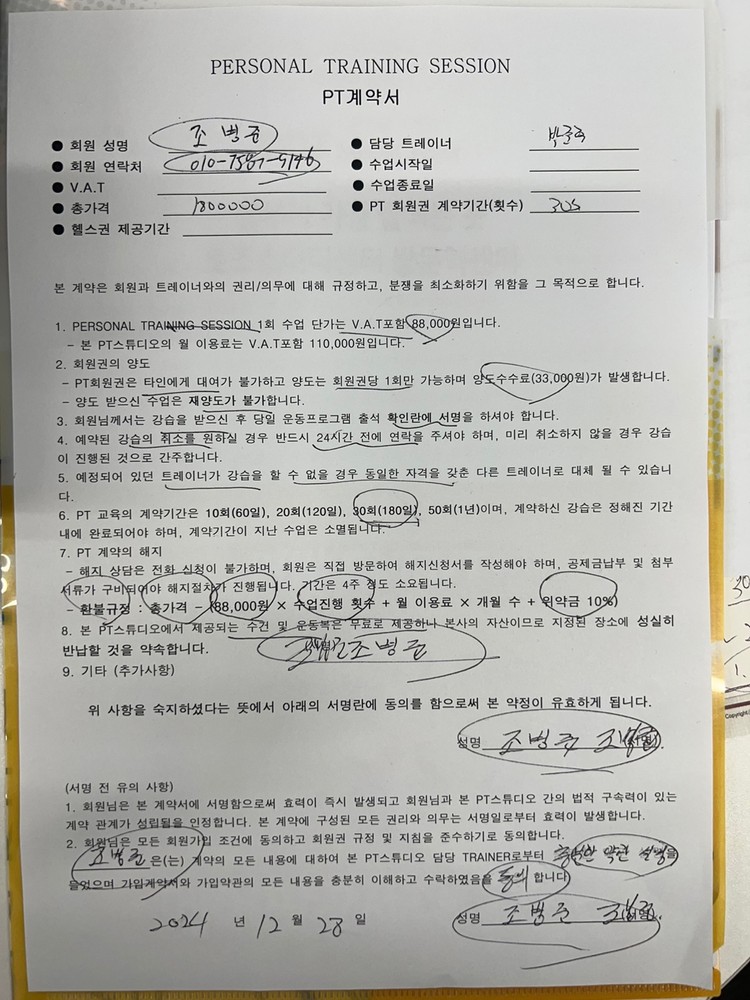 PERSONAL TRAINING SESSION
PT계약서
● 회원 성명 조병준 ● 담당 트레이너
● 회원 연락처 ● 수업시작일
● V.A.T ● 수업종료일
● 총가격 1800000 ● PT 회원권 계약기간(횟수) 30s
● 헬스권 제공기간
본 계약은 회원과 트레이너와의 권리/의무에 대해 규정하고, 분쟁을 최소화하기 위함을 그 목적으로 합니다.
1. PERSONAL TRAINING SESSION 1회 수업 단가는 V.A.T포함 88,000원입니다.
- 본 PT스튜디오의 월 이용료는 V.A.T포함 110,000원입니다.
2. 회원권의 양도
- PT회원권은 타인에게 대여가 불가하고 양도는 회원권당 1회만 가능하며 양도수수료(33,000원)가 발생합니다.
- 양도 받으신 수업은 재양도가 불가합니다.
3. 회원님께서는 강습을 받으신 후 당일 운동프로그램 출석 확인란에 서명을 하셔야 합니다.
4. 예약된 강습의 취소를 원하실 경우 반드시 24시간 전에 연락을 주셔야 하며, 미리 취소하지 않을 경우 강습
이 진행된 것으로 간주합니다.
5. 예정되어 있던 트레이너가 강습을 할 수 없을 경우 동일한 자격을 갖춘 다른 트레이너로 대체 될 수 있습니
다.
6. PT 교육의 계약기간은 10회(60일), 20회(120일), 30회(180일), 50회(1년)이며, 계약하신 강습은 정해진 기간
내에 완료되어야 하며, 계약기간이 지난 수업은 소멸됩니다.
7. PT 계약의 해지
- 해지 상담은 전화 신청이 불가하며, 회원은 직접 방문하여 해지신청서를 작성해야 하며, 공제금납부 및 첨부
서류가 구비되어야 해지절차가 진행됩니다. 기간은 4주 정도 소요됩니다.
- 환불규정 : 총가격 - (88,000원 × 수업진행 횟수 + 월 이용료 × 개월 수 + 위약금 10%)
8. 본 PT스튜디오에서 제공되는 수건 및 운동복은 무료로 제공하나 본사의 자산이므로 지정된 장소에 성실히
반납할 것을 약속합니다. 조병준
9. 기타 (추가사항)
위 사항을 숙지하셨다는 뜻에서 아래의 서명란에 동의를 함으로써 본 약정이 유효하게 됩니다.
성명 조병준 조병준
(서명 전 유의 사항)
1. 회원님은 본 계약서에 서명함으로써 효력이 즉시 발생되고 회원님과 본 PT스튜디오 간의 법적 구속력이 있는
계약 관계가 성립됨을 인정합니다. 본 계약에 구성된 모든 권리와 의무는 서명일로부터 효력이 발생합니다.
2. 회원님은 모든 회원가입 조건에 동의하고 회원권 규정 및 지침을 준수하기로 동의합니다.
조병준 은(는) 계약의 모든 내용에 대하여 본 PT스튜디오 담당 TRAINER로부터 충분한 약관 설명을
들었으며 가입계약서와 가입약관의 모든 내용을 충분히 이해하고 수락하였음을 동의 합니다.
2024 년 12 월 28 일 성명 조병준 조병준